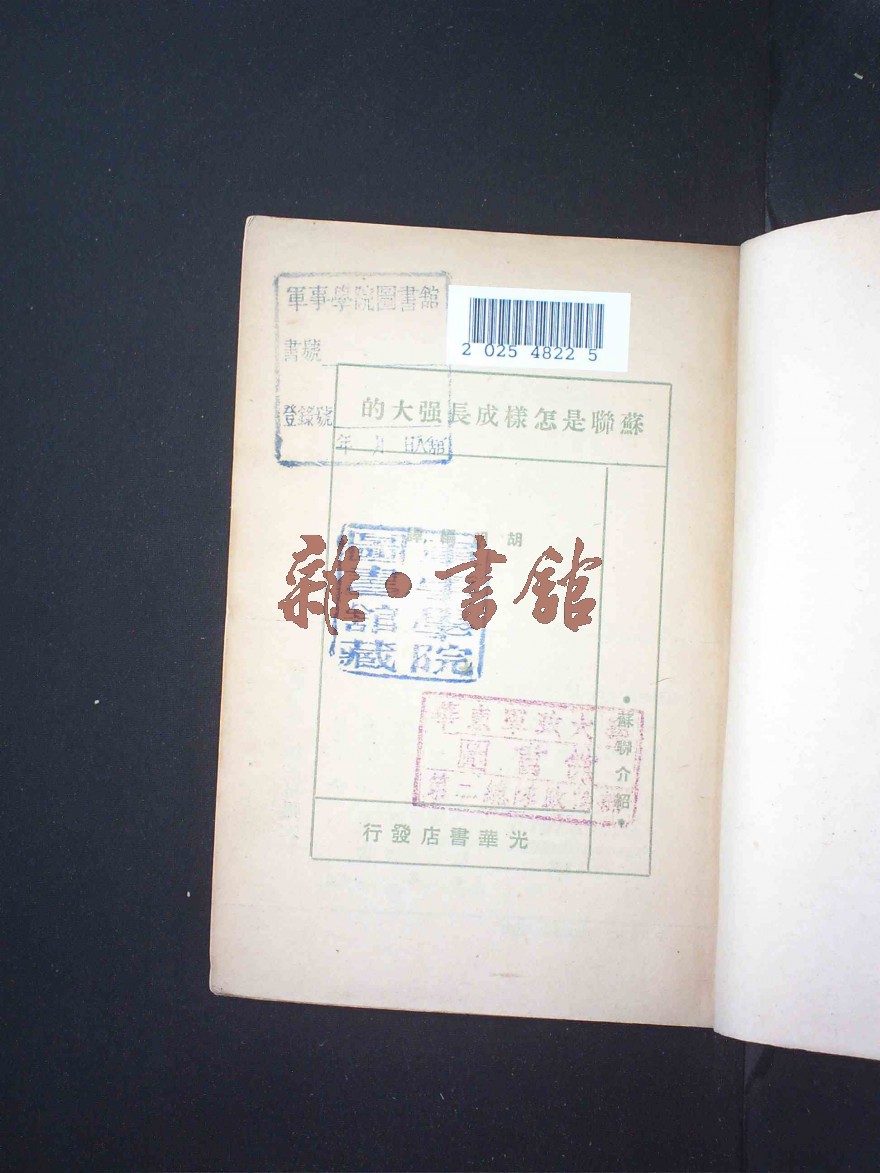 軍事學院圖書館
書號
登錄號
年 月 日入館
2 025 4822 5
蘇聯是怎樣成長强大的
胡明編譯
雜·書館
軍事學院
圖書館藏
圖書館
•蘇聯介紹•
光華書店發行